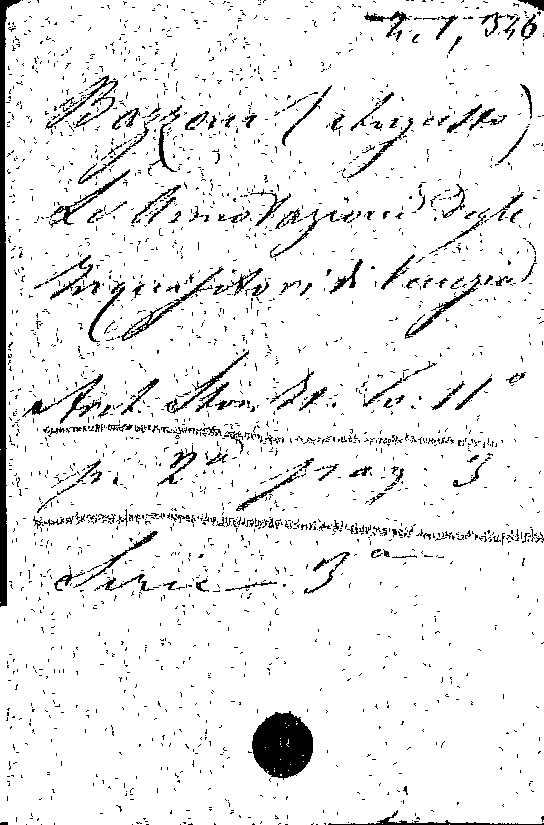 2.1,326
Bazzoni (Augusto)
Le Annotazioni degli
Inquisitori di Venezia
Arch. Stor. It. To. 11º
p. 2ª pag 3
Serie 3ª